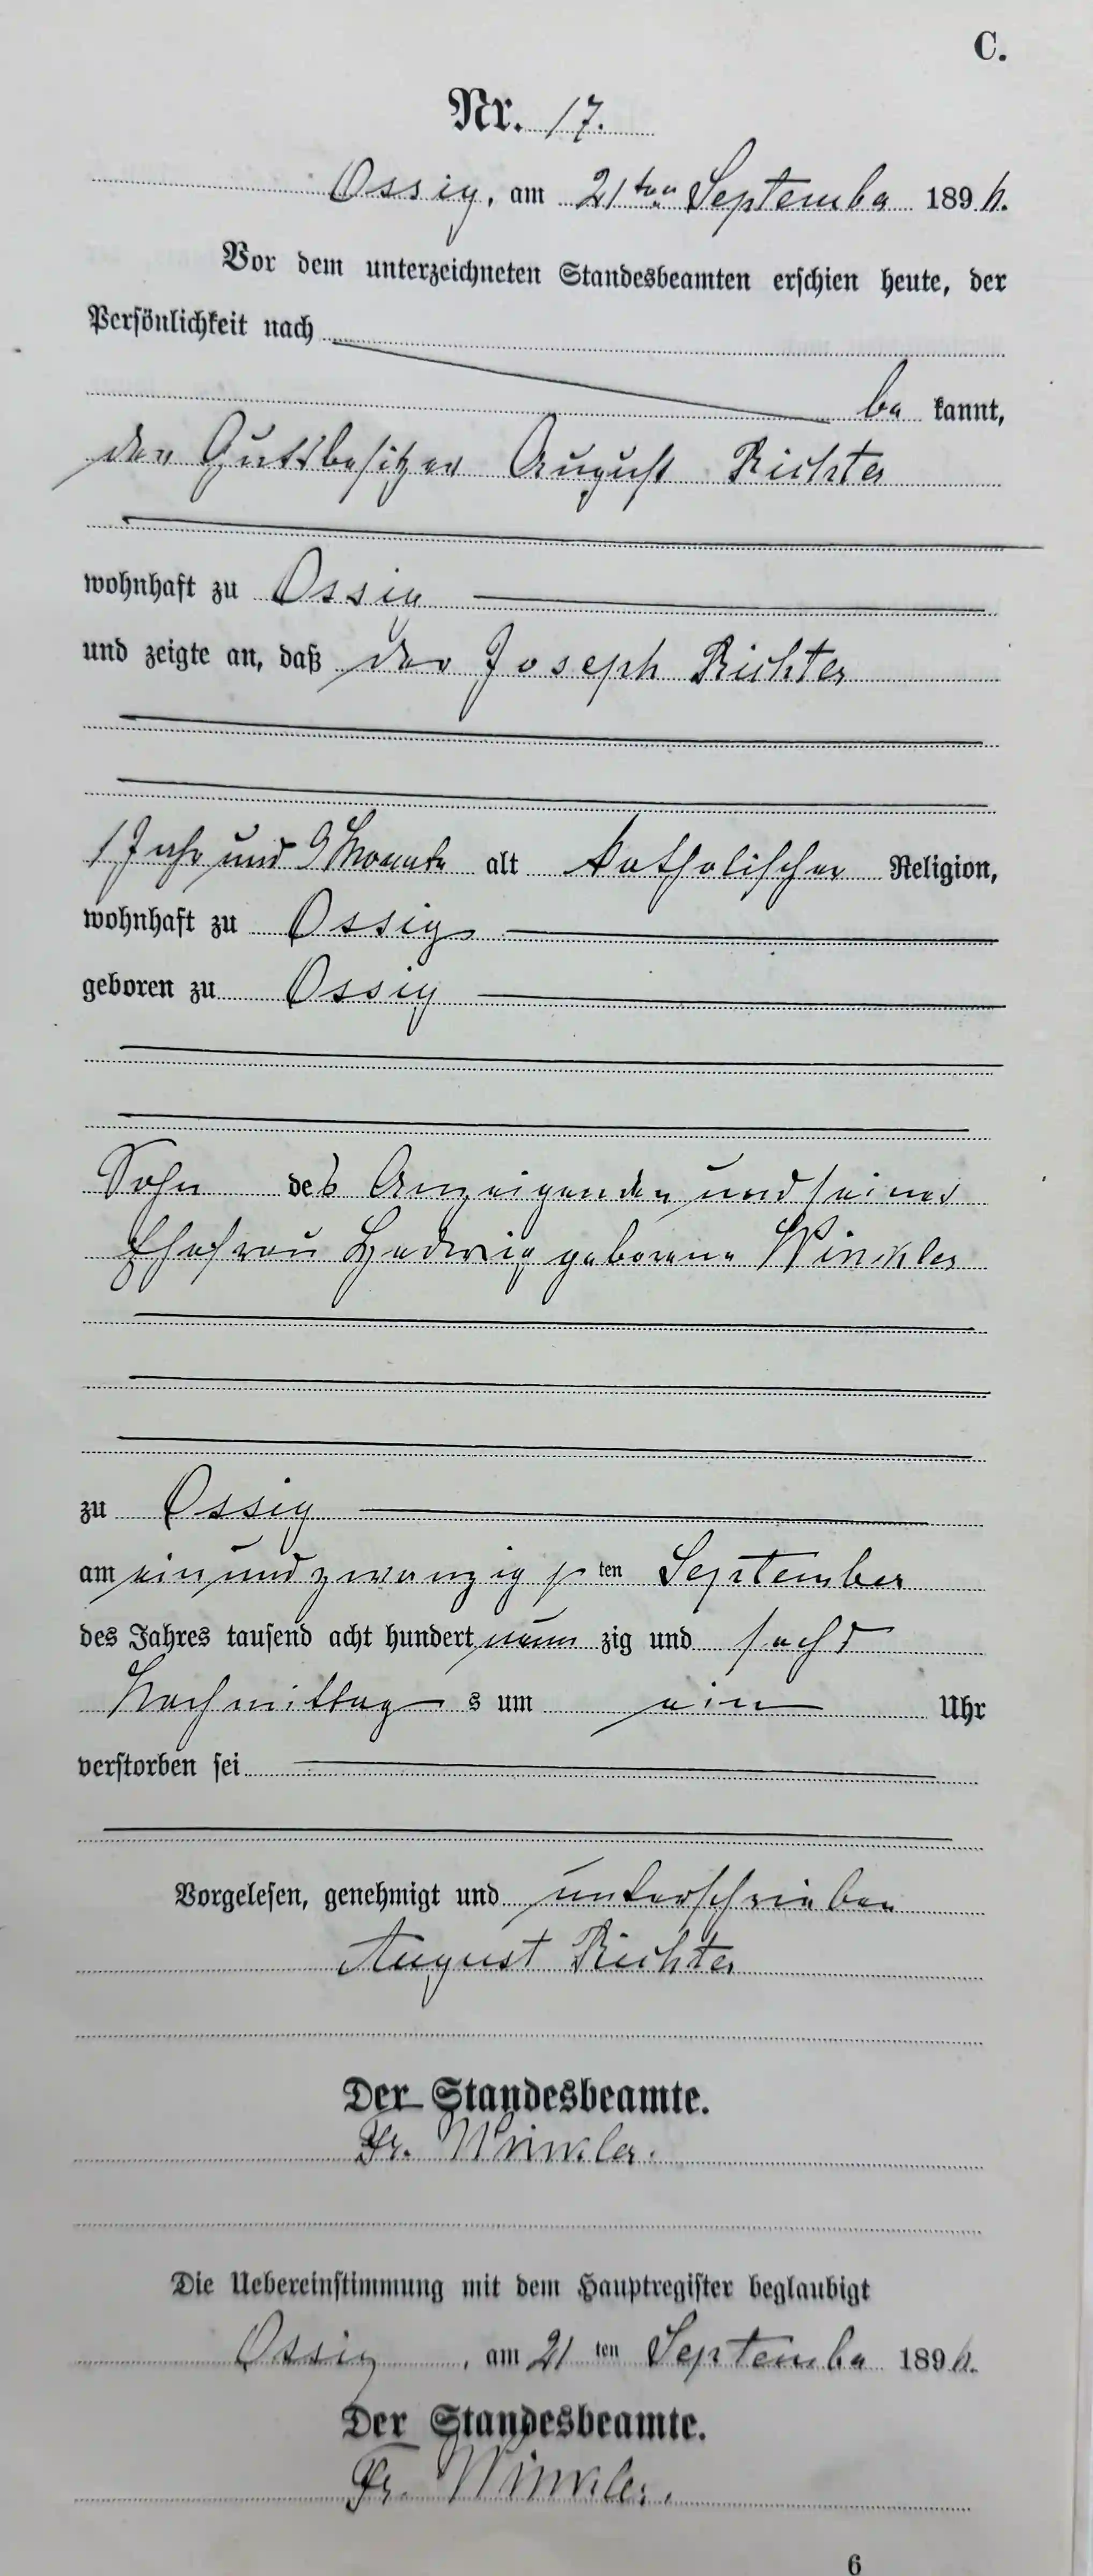 C.
Nr. 17.
Ossig, am 21ten September 1896.
Vor dem unterzeichneten Standesbeamten erschien heute, der
Persönlichkeit nach
be kannt,
der Gutsbesitzer August Richter
wohnhaft zu Ossig
und zeigte an, daß der Joseph Richter
1 Jahr und 9 Monate alt katholischer Religion,
wohnhaft zu Ossig
geboren zu Ossig
Sohn des Anzeigenden und seiner
Ehefrau Hedwig geborene Winkler
zu Ossig
am einundzwanzigsten September
des Jahres tausend acht hundert neun zig und sechs
Nachmittag s um ein Uhr
verstorben sei
Vorgelesen, genehmigt und unterschrieben
August Richter
Der Standesbeamte.
Fr. Winkler.
Die Uebereinstimmung mit dem Hauptregister beglaubigt
Ossig, am 21 ten September 1896.
Der Standesbeamte.
Fr. Winkler.
6